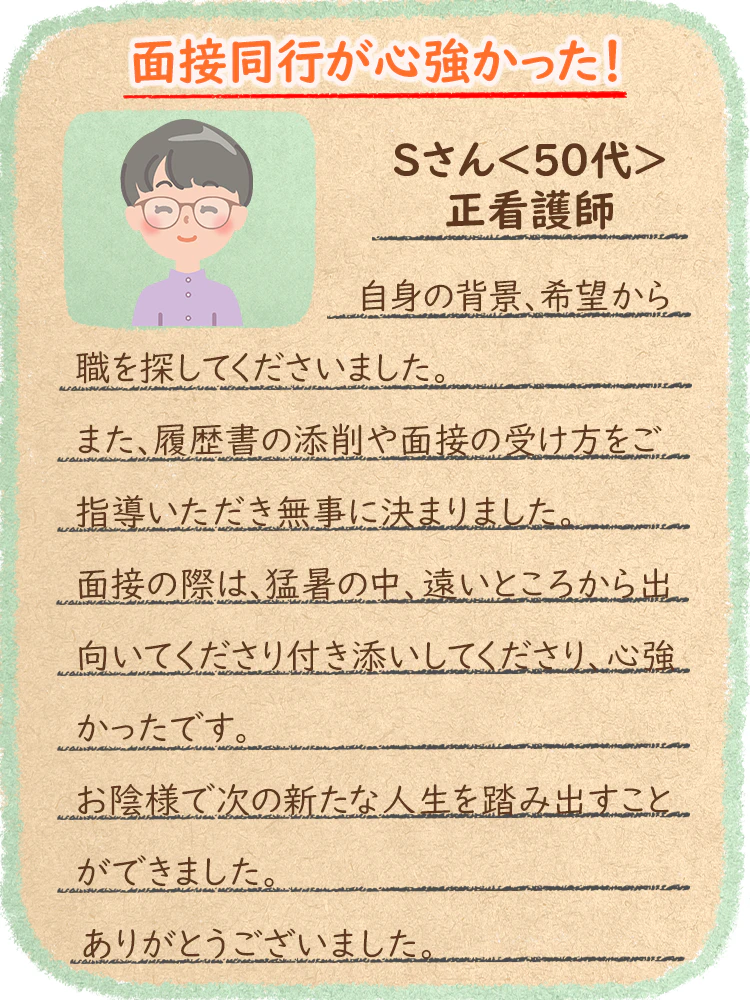 面接同行が心強かった!
Sさん<50代>
正看護師
自身の背景、希望から
職を探してくださいました。
また、履歴書の添削や面接の受け方をご
指導いただき無事に決まりました。
面接の際は、猛暑の中、遠いところから出
向いてくださり付き添いしてくださり、心強
かったです。
お陰様で次の新たな人生を踏み出すこと
ができました。
ありがとうございました。